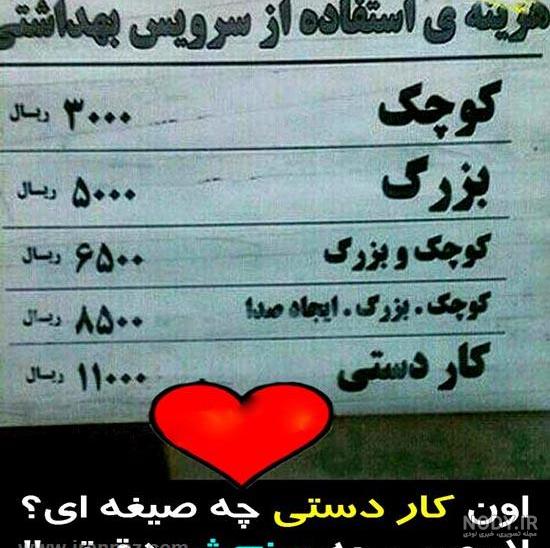 هزینه ی استفاده از سرویس بهداشتی
کوچک ۳۰۰۰ ریال
بزرگ ۵۰۰۰ ریال
کوچک و بزرگ ۶۵۰۰ ریال
کوچک . بزرگ . ایجاد صدا ۸۵۰۰ ریال
کار دستی ۱۱۰۰۰ ریال
اون کار دستی چه صیغه ای؟
NODY.IR
مجله تصویری، خبری نودی